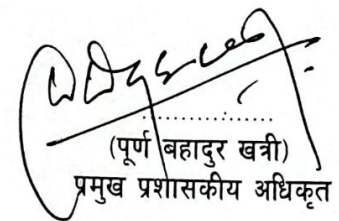 ....................
(पूर्ण बहादुर खत्री)
प्रमुख प्रशासकीय अधिकृत